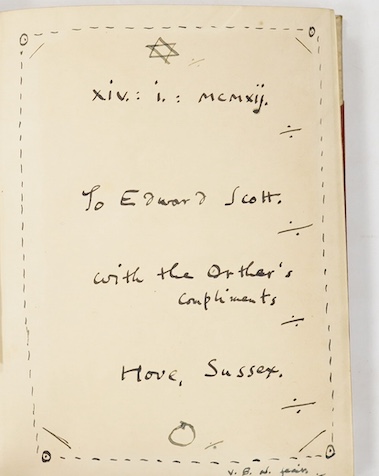 xiv. : i. : mcmxij.
To Edward Scott.
with the Orther's
compliments
Hove, Sussex.
V. B. N.